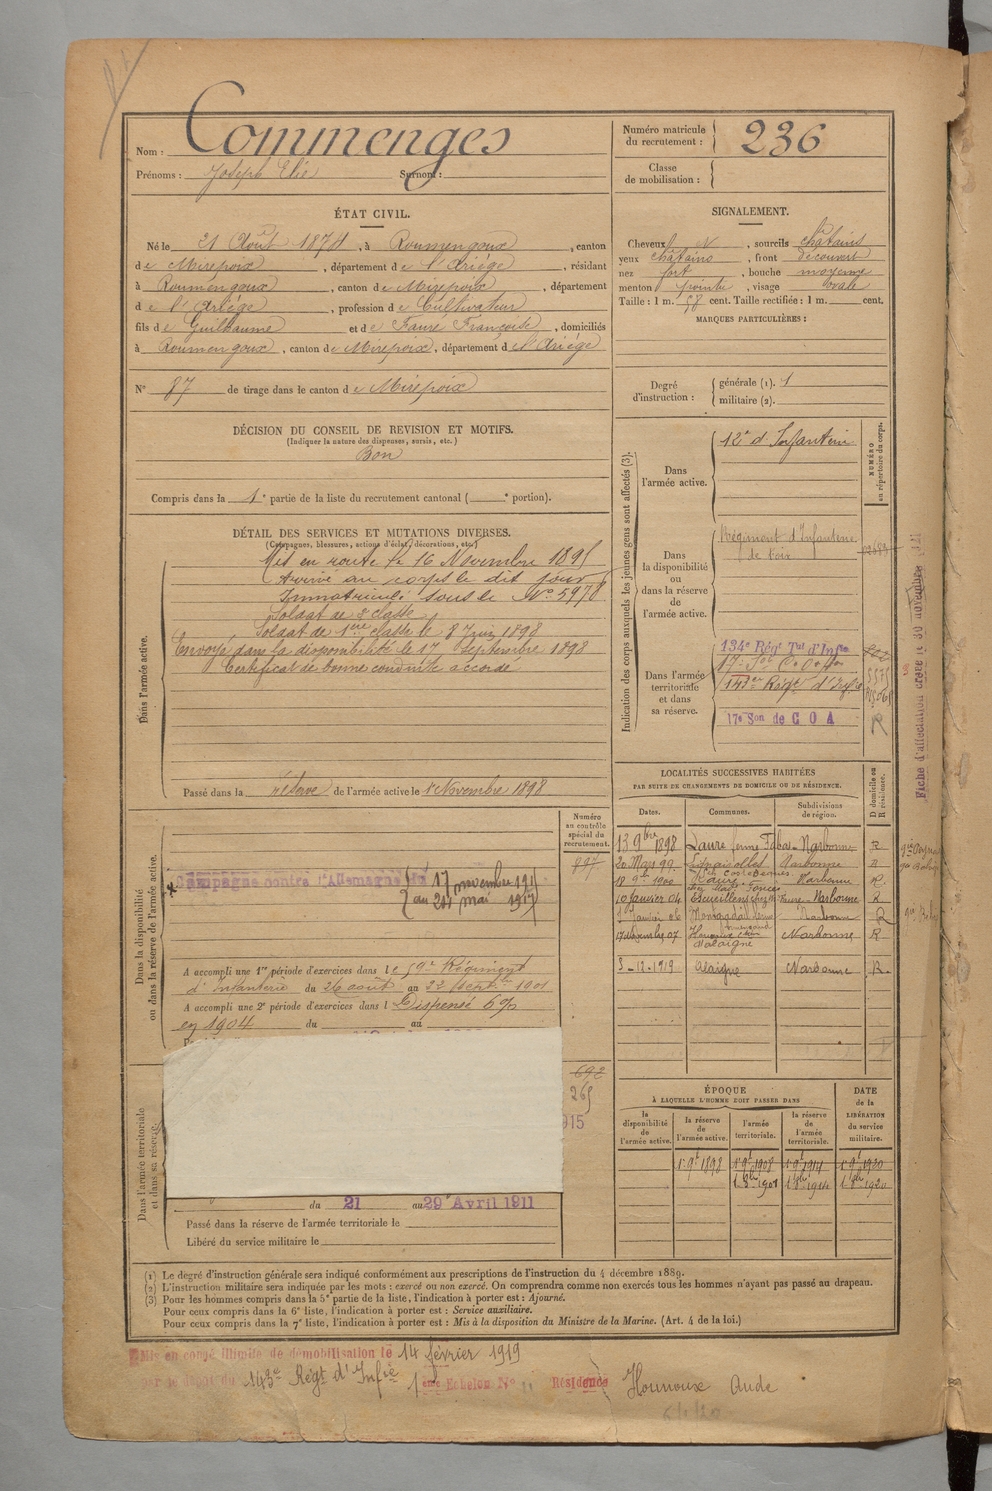 Nom : Commenges
Prénoms : Joseph Elie Surnom :
Numéro matricule du recrutement : 236
Classe de mobilisation :
ÉTAT CIVIL.
Né le 21 Août 1874, à Roumengoux, canton
de Mirepoix, département de l'Ariège, résidant
à Roumengoux, canton de Mirepoix, département
de l'Ariège, profession de Cultivateur
fils de Guilhaume et de Faure Françoise, domiciliés
à Roumengoux, canton de Mirepoix, département de l'Ariège
N° 87 de tirage dans le canton de Mirepoix
SIGNALEMENT.
Cheveux N, sourcils chatains
yeux chatains, front découvert
nez fort, bouche moyenne
menton pointu, visage ovale
Taille : 1 m. 58 cent. Taille rectifiée : 1 m. cent.
MARQUES PARTICULIÈRES :
Degré d'instruction : générale (1). 1
militaire (2).
DÉCISION DU CONSEIL DE REVISION ET MOTIFS.
(Indiquer la nature des dispenses, sursis, etc.)
Bon
Compris dans la 1e partie de la liste du recrutement cantonal ( e portion).
DÉTAIL DES SERVICES ET MUTATIONS DIVERSES.
(Campagnes, blessures, actions d'éclat, décorations, etc.)
Dans l'armée active.
Mis en route le 16 Novembre 1895
Arrivé au corps le dit jour
Immatriculé sous le N° 5978
Soldat de 2e classe
Soldat de 1ère classe le 8 Juin 1898
Envoyé dans la disponibilité le 17 Septembre 1898
Certificat de bonne conduite accordé
Passé dans la réserve de l'armée active le 1er Novembre 1898
Indication des corps auxquels les jeunes gens sont affectés (3).
NUMÉRO au répertoire du corps.
Dans l'armée active.
12e d'Infanterie
Dans la disponibilité ou dans la réserve de l'armée active.
Régiment d'Infanterie
de Foix
Dans l'armée territoriale et dans sa réserve.
134e Régt Tal d'Infie
143e Régt d'Infie
17e Son de C O A
R
Fiche d'affectation créée le 30 novembre
LOCALITÉS SUCCESSIVES HABITÉES
PAR SUITE DE CHANGEMENTS DE DOMICILE OU DE RÉSIDENCE.
Dates. Communes. Subdivisions de région. D domicile ou R résidence.
13 9bre 1898 Laure ferme Narbonne R
20 Mars 99 Narbonne R
18 9bre 1900 Narbonne R
10 Janvier 04 Narbonne R
Janvier 06 Narbonne R
17 décembre 07 d'alaigne Narbonne R
3-12-1919 Alaigne Narbonne R.
Dans la disponibilité ou dans la réserve de l'armée active.
Numéro au contrôle spécial du recrutement.
897
Campagne contre l'Allemagne du 17 novembre
au mai
A accompli une 1re période d'exercices dans le 59e Régiment
d'Infanterie du 26 août au 22 septbre 1901
A accompli une 2e période d'exercices dans l Dispensé
en 1904 du au
Dans l'armée territoriale et dans sa réserve.
692
265
915
du 21 au 29 Avril 1911
Passé dans la réserve de l'armée territoriale le
Libéré du service militaire le
ÉPOQUE
À LAQUELLE L'HOMME DOIT PASSER DANS
la disponibilité de l'armée active.
la réserve de l'armée active.
l'armée territoriale.
la réserve de l'armée territoriale.
DATE de la LIBÉRATION du service militaire.
1er 9bre 1898 1er 9bre 1908 1er 9bre 1914 1er 9bre 1920
(1) Le degré d'instruction générale sera indiqué conformément aux prescriptions de l'instruction du 4 décembre 1889.
(2) L'instruction militaire sera indiquée par les mots : exercé ou non exercé. On comprendra comme non exercés tous les hommes n'ayant pas passé au drapeau.
(3) Pour les hommes compris dans la 5e partie de la liste, l'indication à porter est : Ajourné.
Pour ceux compris dans la 6e liste, l'indication à porter est : Service auxiliaire.
Pour ceux compris dans la 7e liste, l'indication à porter est : Mis à la disposition du Ministre de la Marine. (Art. 4 de la loi.)
Mis en congé illimité de démobilisation le 14 février 1919
par le dépôt du 143e Régt d'Infie 1ème Echelon N° 11 Résidence Hounoux Aude